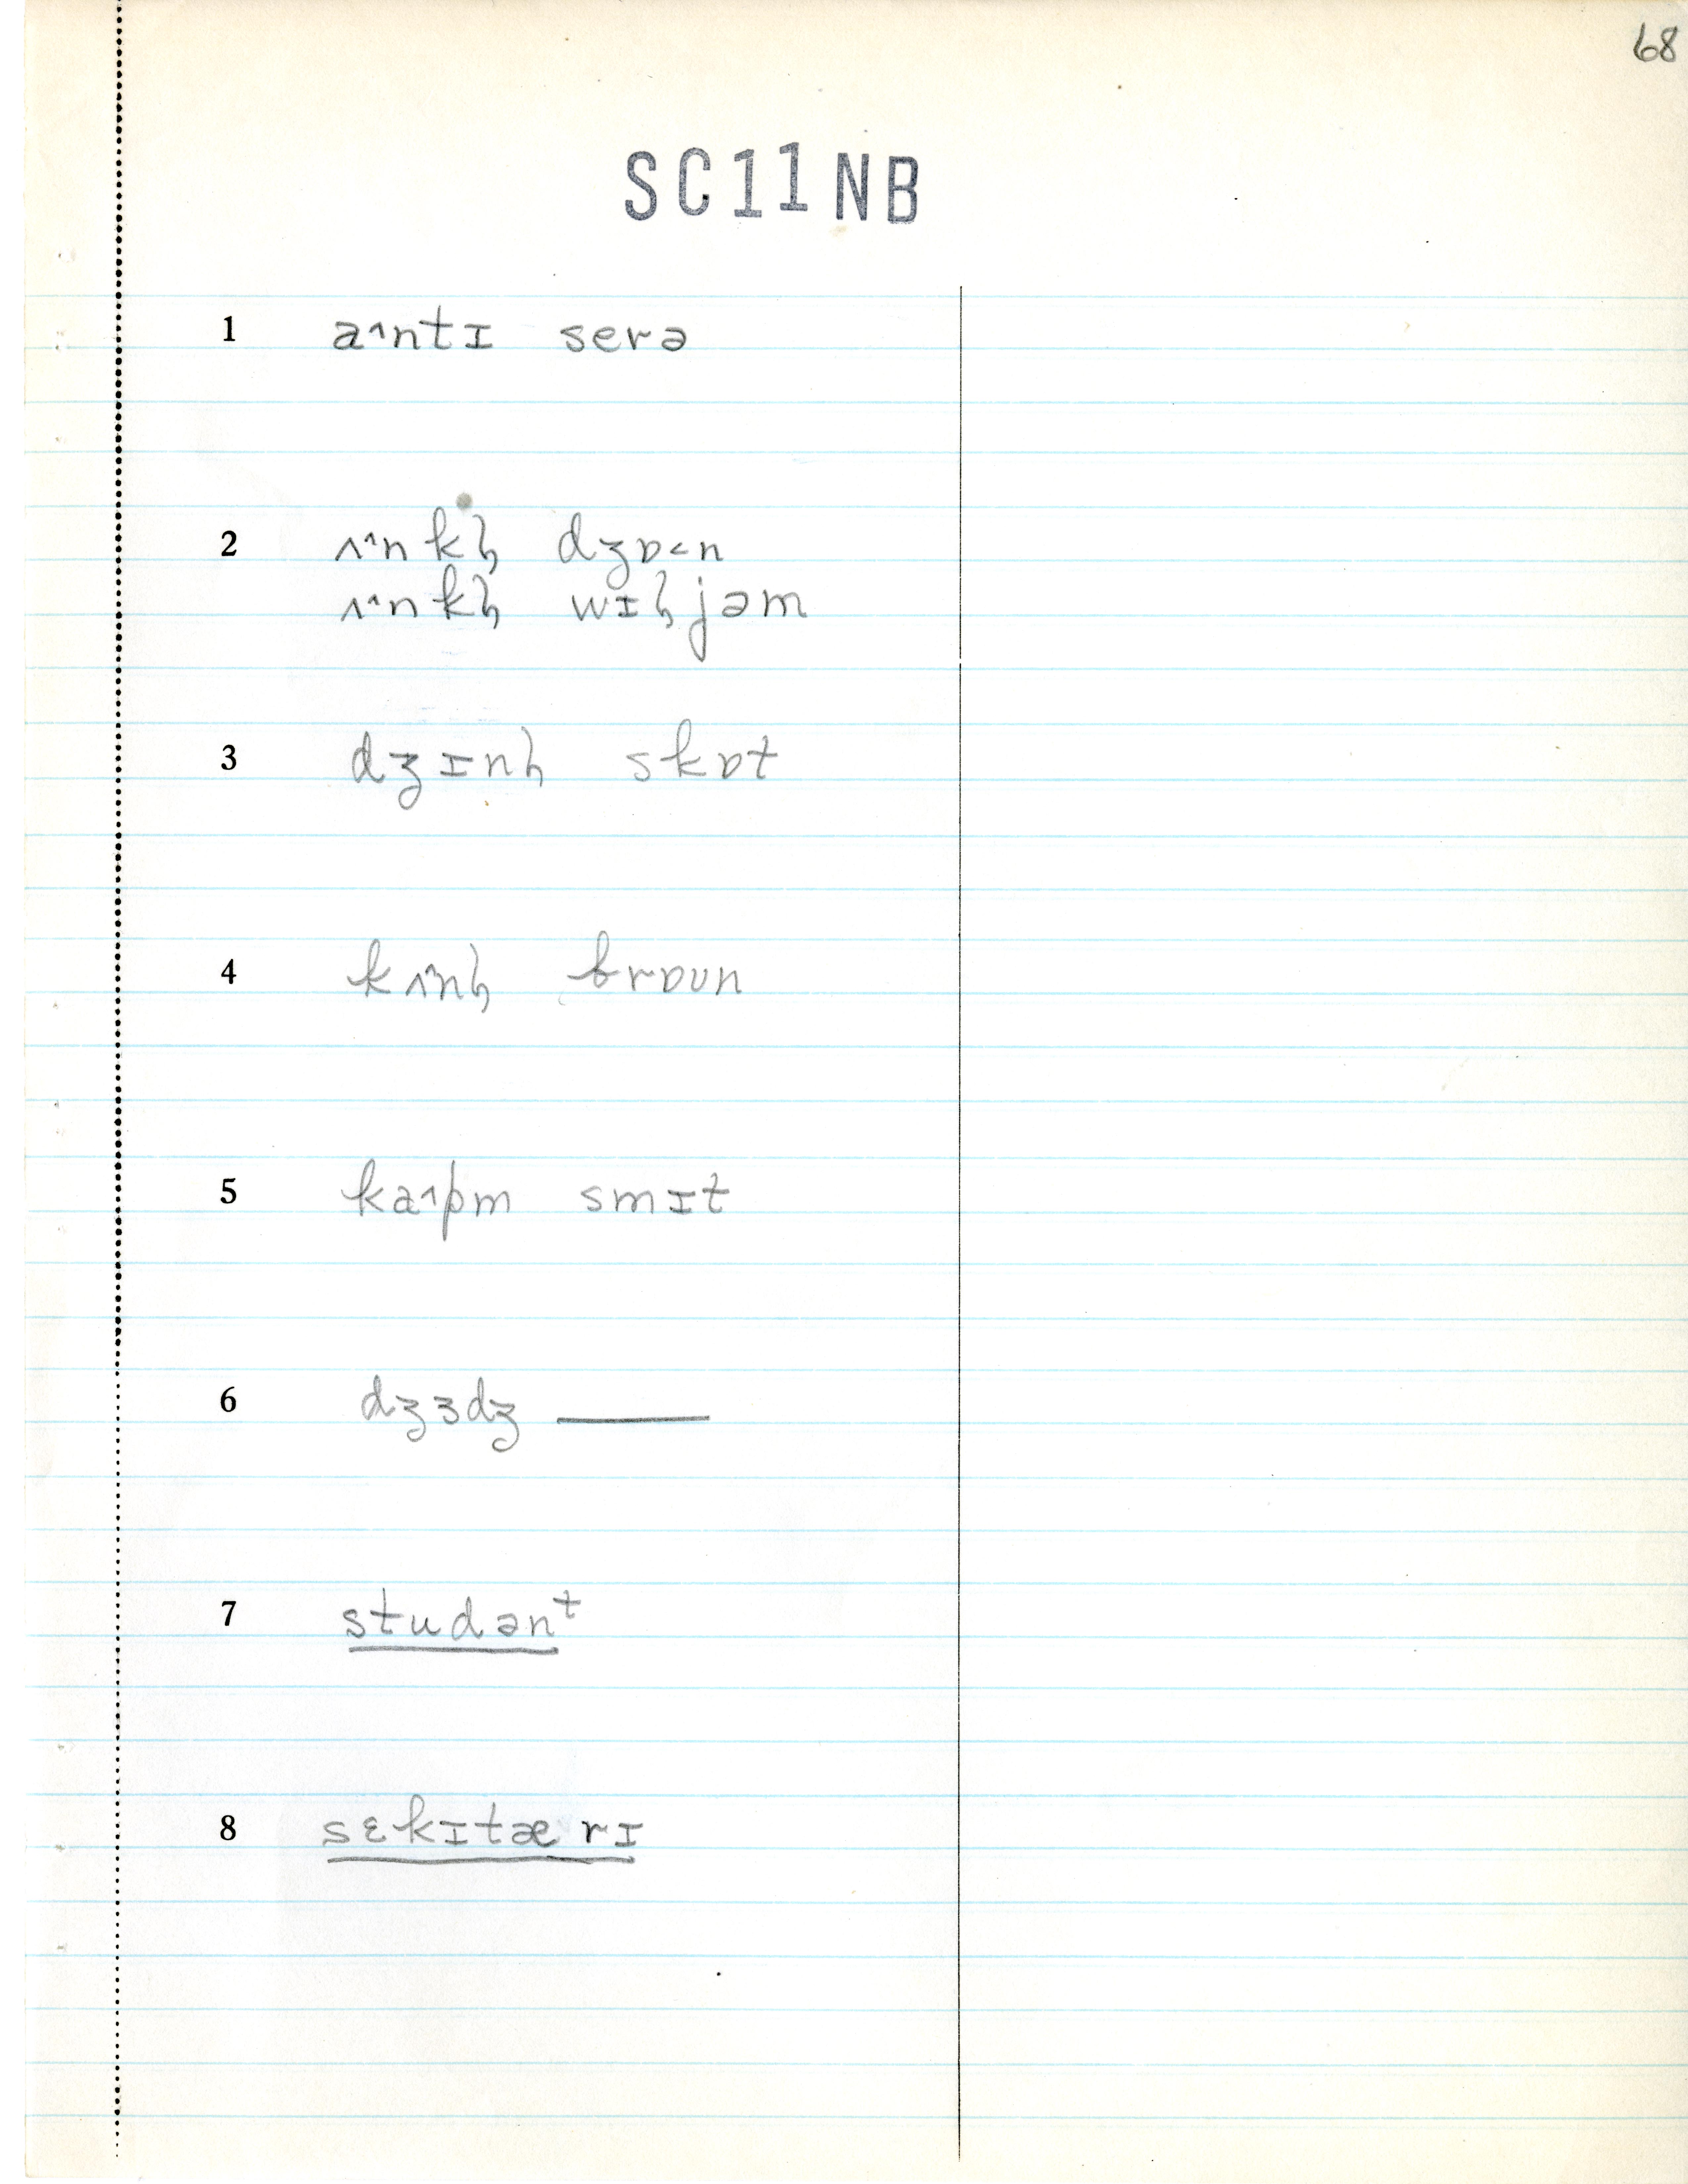 68
SC11NB
1 a˄ntɪ serə
2 ʌ˄nkl̩ dʒɒ˂n
ʌ˄nkl̩ wɪl̩jəm
3 dʒɪnl̩ skɒt
4 kʌ˄nl̩ brɒʊn
5 ka˄pm smɪt
6 dʒɜdʒ ———
7 studənᵗ
8 sɛkɪtærɪ